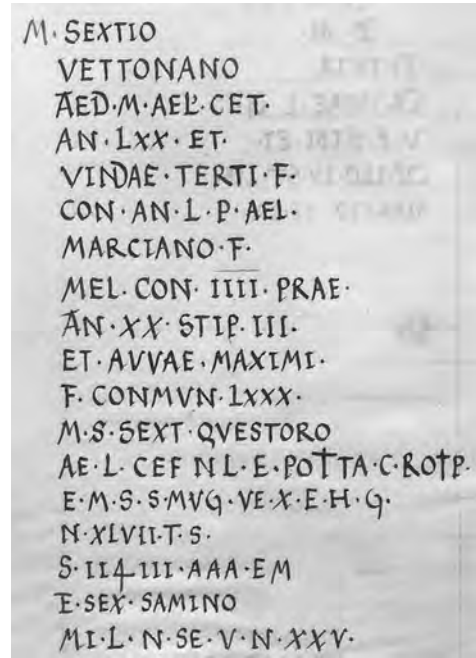 M. SEXTIO
VETTONANO
AED·M·AEL·CET·
AN·LXX·ET·
VINDAE·TERTI·F·
CON·AN·L·P·AEL·
MARCIANO·F·
MEL·CON·IIII·PRAE·
AN·XX·STIP·III·
ET·AVVAE·MAXIMI·
F·CONMVN·LXXX·
M·S·SEXT·QVESTORO
AE·L·CEF N L·E·POTTA·C·ROTP·
E·M·S·S·MVG·VE·X·E·H·G·
N·XLVII·T·S·
S·II4·III·AAA·EM
E·SEX·SAMINO
MI·L·N·SE·V·N·XXV·